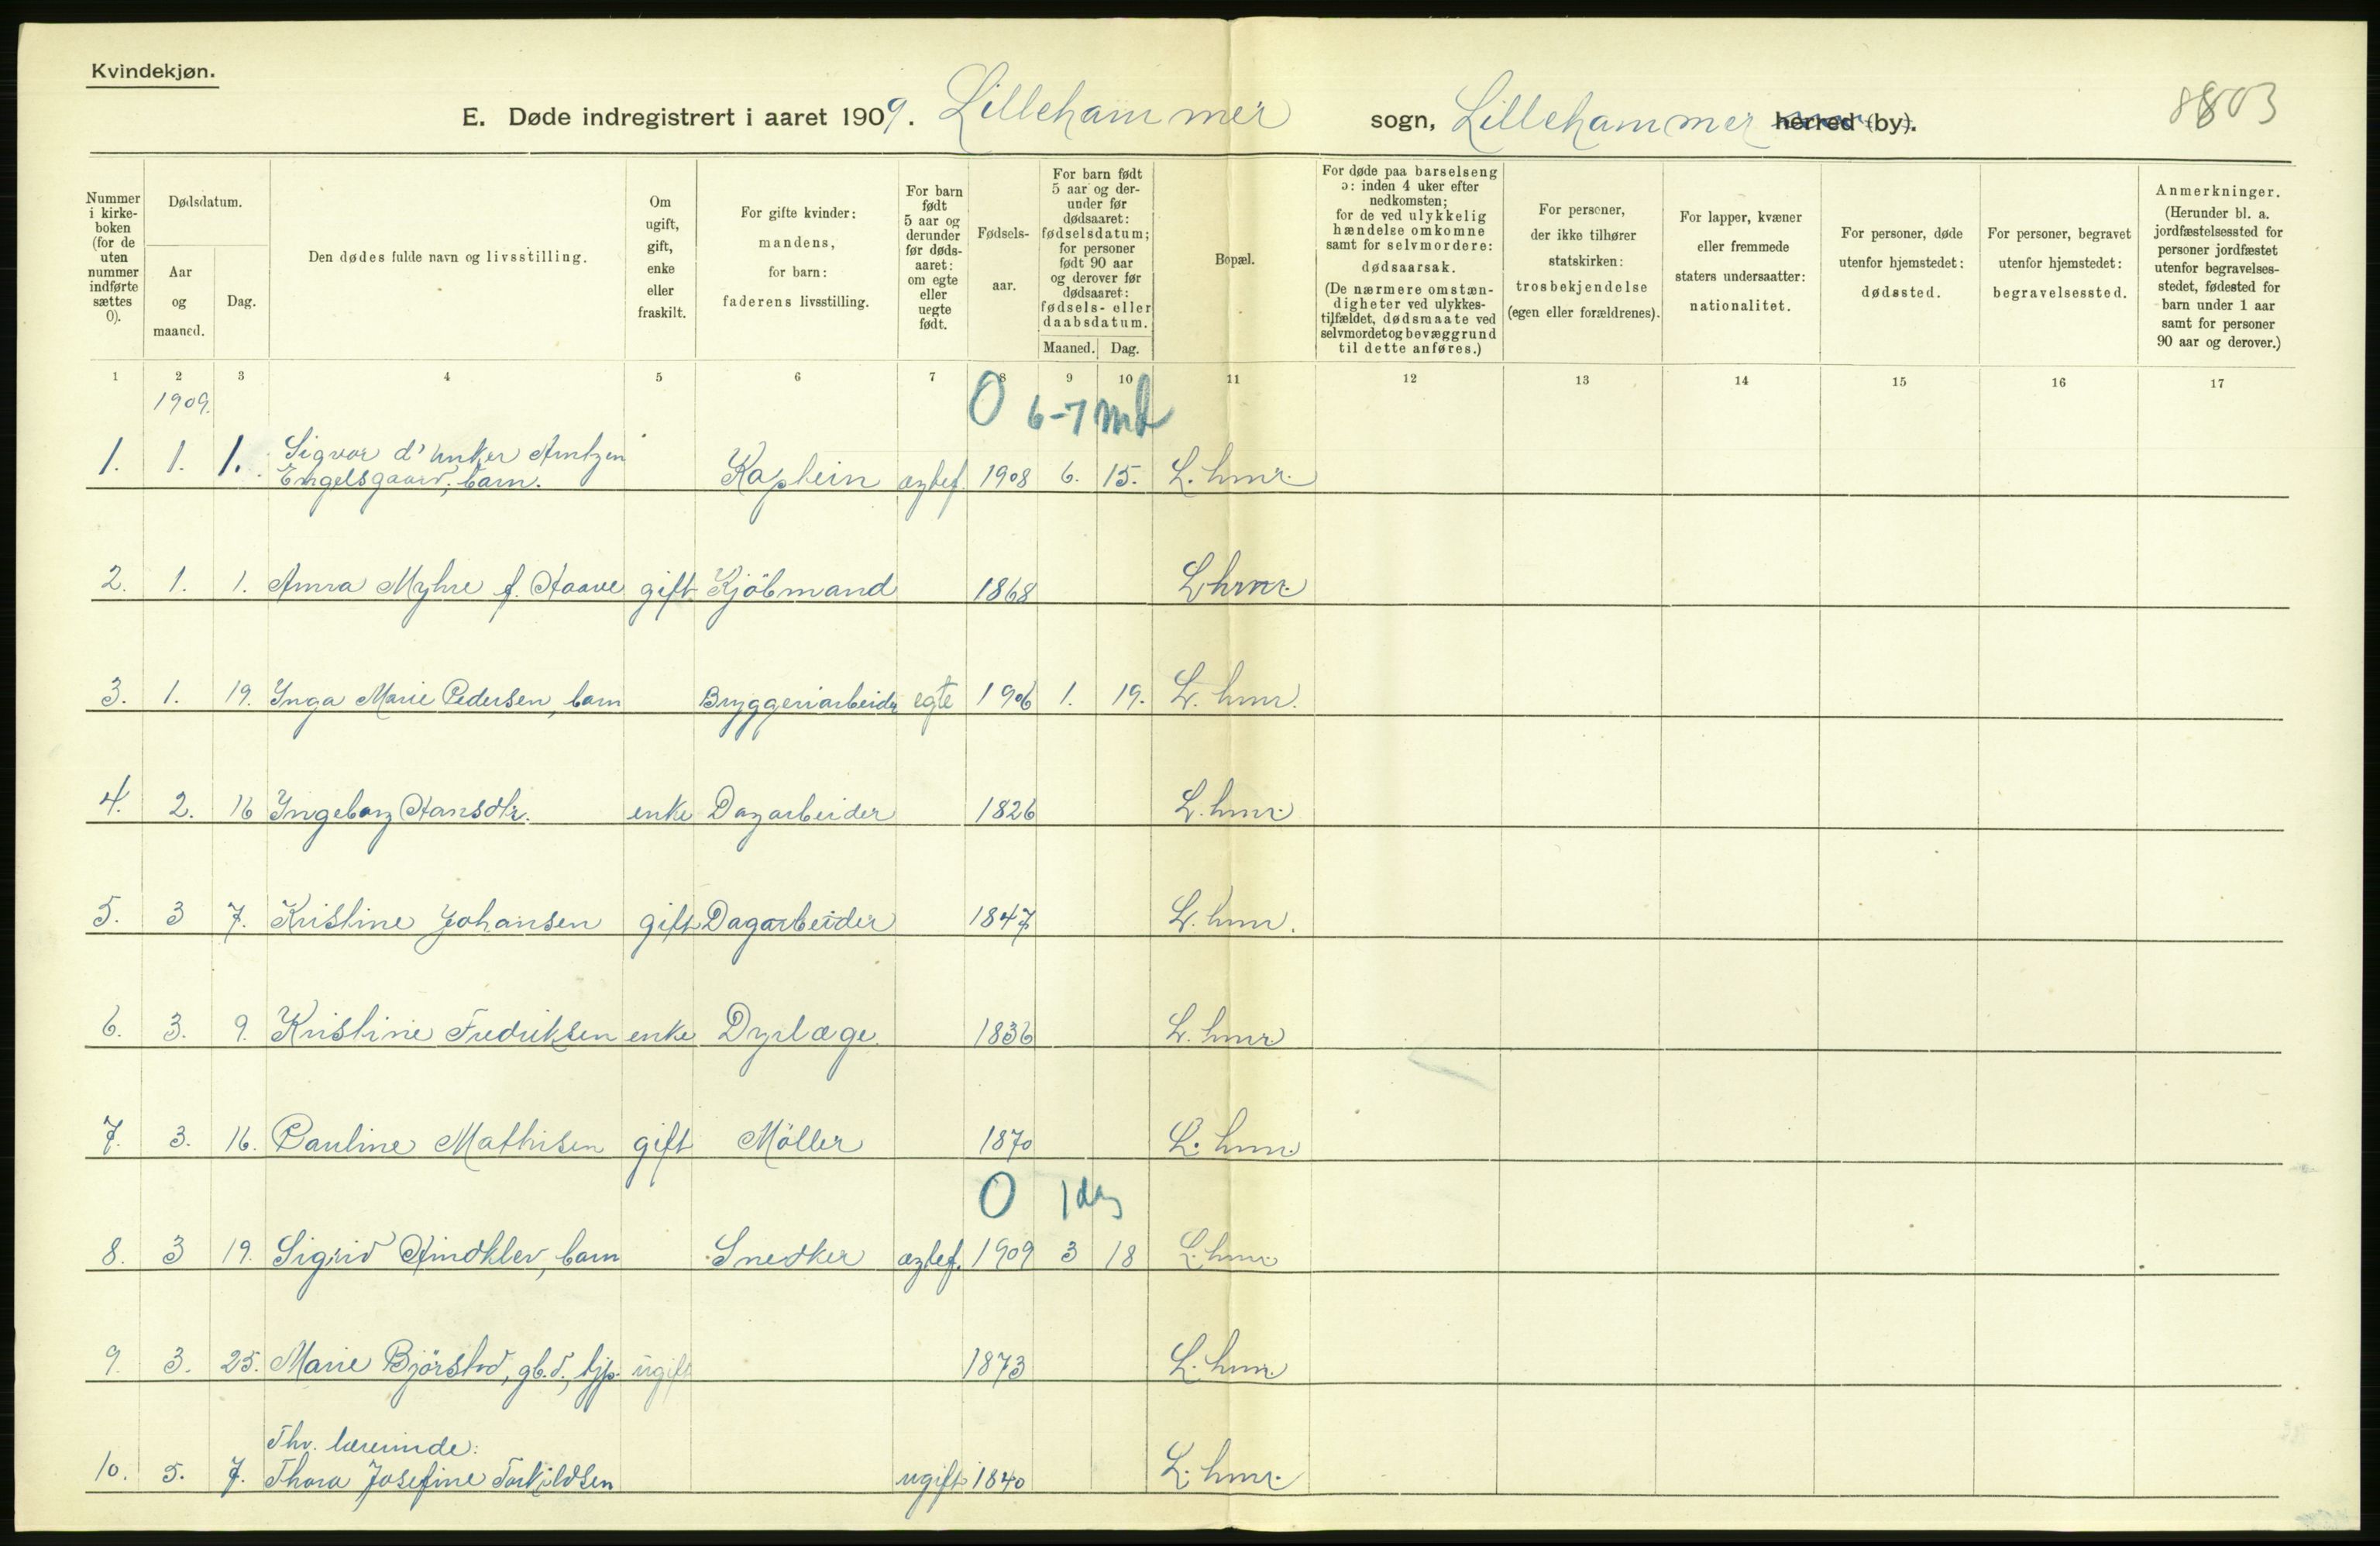 Kvindekjøn.
E. Døde indregistrert i aaret 1909. Lillehammer sogn, Lillehammer herred (by).
8803
Nummer i kirkeboken (for de uten nummer indførte sættes 0).
Dødsdatum.
Aar og maaned.
Dag.
Den dødes fulde navn og livsstilling.
Om ugift, gift, enke eller fraskilt.
For gifte kvinder: mandens, for barn: faderens livsstilling.
For barn født 5 aar og derunder før dødsaaret: om egte eller uegte født.
Fødselsaar.
For barn født 5 aar og derunder før dødsaaret: fødselsdatum; for personer født 90 aar og derover før dødsaaret: fødsels- eller daabsdatum.
Maaned. Dag.
Bopæl.
For døde paa barselseng ɔ: inden 4 uker efter nedkomsten; for de ved ulykkelig hændelse omkomne samt for selvmordere: dødsaarsak. (De nærmere omstændigheter ved ulykkestilfældet, dødsmaate ved selvmordet og bevæggrund til dette anføres.)
For personer, der ikke tilhører statskirken: trosbekjendelse (egen eller forældrenes).
For lapper, kvæner eller fremmede staters undersaatter: nationalitet.
For personer, døde utenfor hjemstedet: dødssted.
For personer, begravet utenfor hjemstedet: begravelsessted.
Anmerkninger. (Herunder bl. a. jordfæstelsessted for personer jordfæstet utenfor begravelsesstedet, fødested for barn under 1 aar samt for personer 90 aar og derover.)
1 2 3 4 5 6 7 8 9 10 11 12 13 14 15 16 17
1909.
0 6-7 md
1. 1. 1. Sigvor d'Unker Arntzen
Engelsgaard, barn. Kaptein ægtef. 1908 6. 15. L.hmr.
2. 1. 1. Anna Myhre f. Haave gift Kjöbmand 1868 Lhmr.
3. 1. 19. Inga Marie Pedersen, barn Bryggeriarbeider egte 1906 1. 19. L.hmr.
4. 2. 16 Ingeborg Hansdtr. enke Dagarbeider 1826 L.hmr.
5. 3 7. Kristine Johansen gift Dagarbeider 1847 L.hmr.
6. 3. 9. Kristine Fredriksen enke Dyrlæge 1836 L.hmr
7. 3. 16. Pauline Mathisen gift Möller 1870 L.hmr.
0 1 dag
8. 3 19. Sigrid Hindklev, barn Snedker ægtef. 1909 3 18 L.hmr.
9. 3. 25. Marie Björstad, gb.d., tjp. ugift 1873 L.hmr.
Fhv. lærerinde:
10. 5. 7. Thora Josefine Torkildsen ugift 1840 L.hmr.